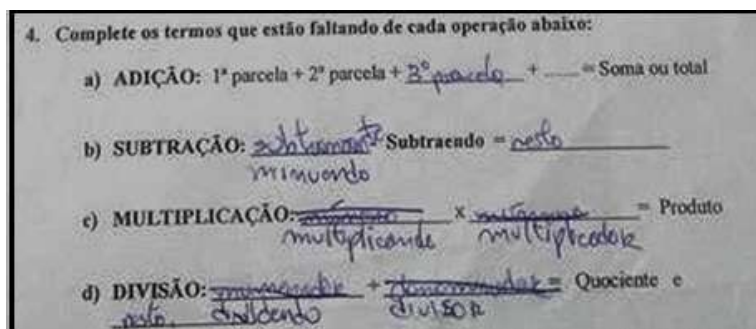 4. Complete os termos que estão faltando de cada operação abaixo:
a) ADIÇÃO: 1ª parcela + 2ª parcela + 3ª parcela + ____ = Soma ou total
b) SUBTRAÇÃO: Subtraendo = resto
minuendo
c) MULTIPLICAÇÃO: x = Produto
multiplicando multiplicador
d) DIVISÃO: ÷ = Quociente e
resto. dividendo divisor